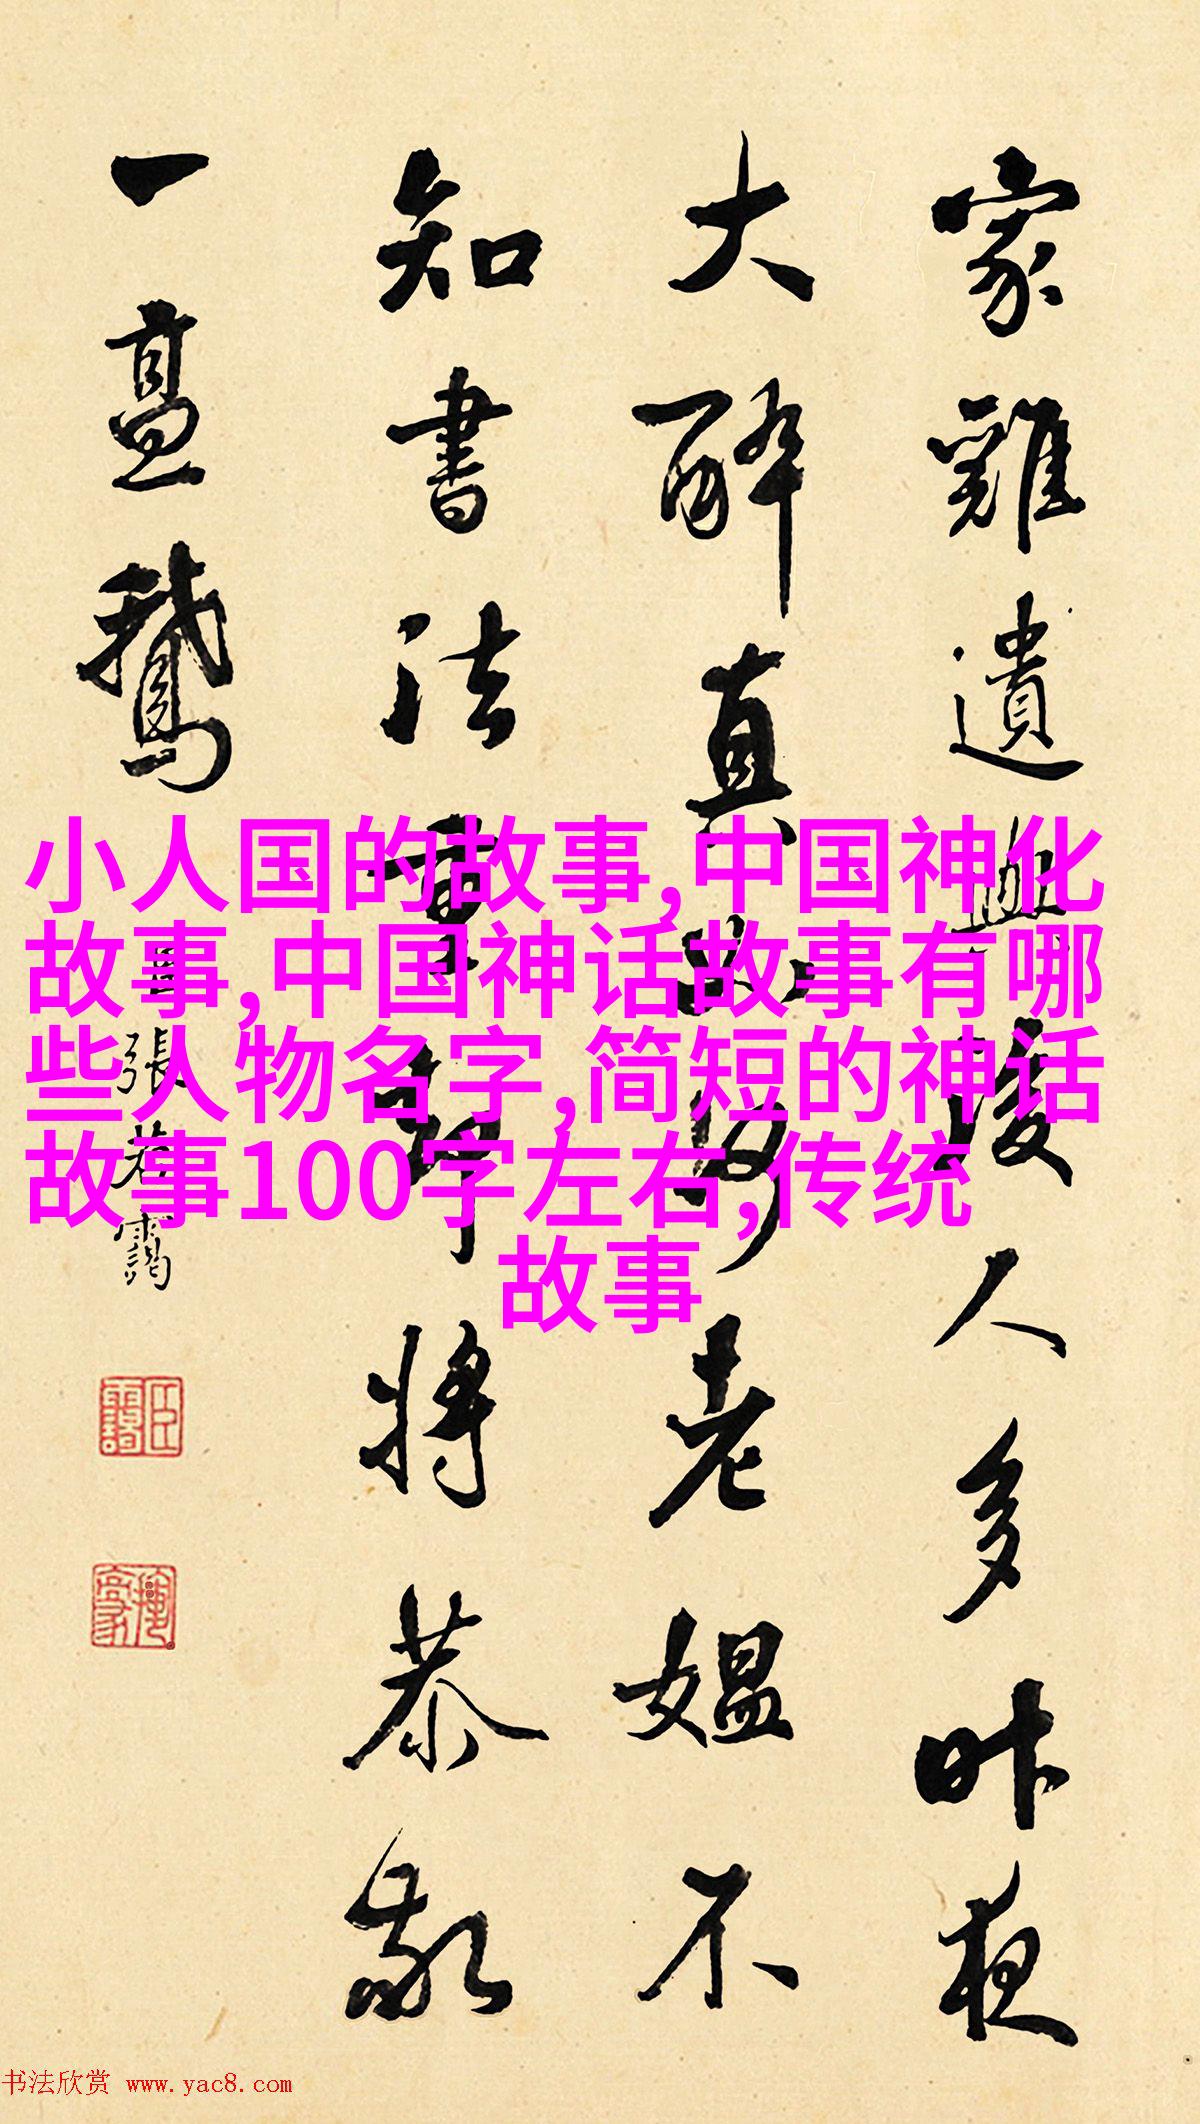 家雞遺後人多昨夜
大醉真老媼不
知書法重將恭敬
一鵞
張若靄
小人国的故事,中国神化
故事,中国神话故事有哪
些人物名字,简短的神话
故事100字左右,传统
故事
书法欣赏 www.yac8.com